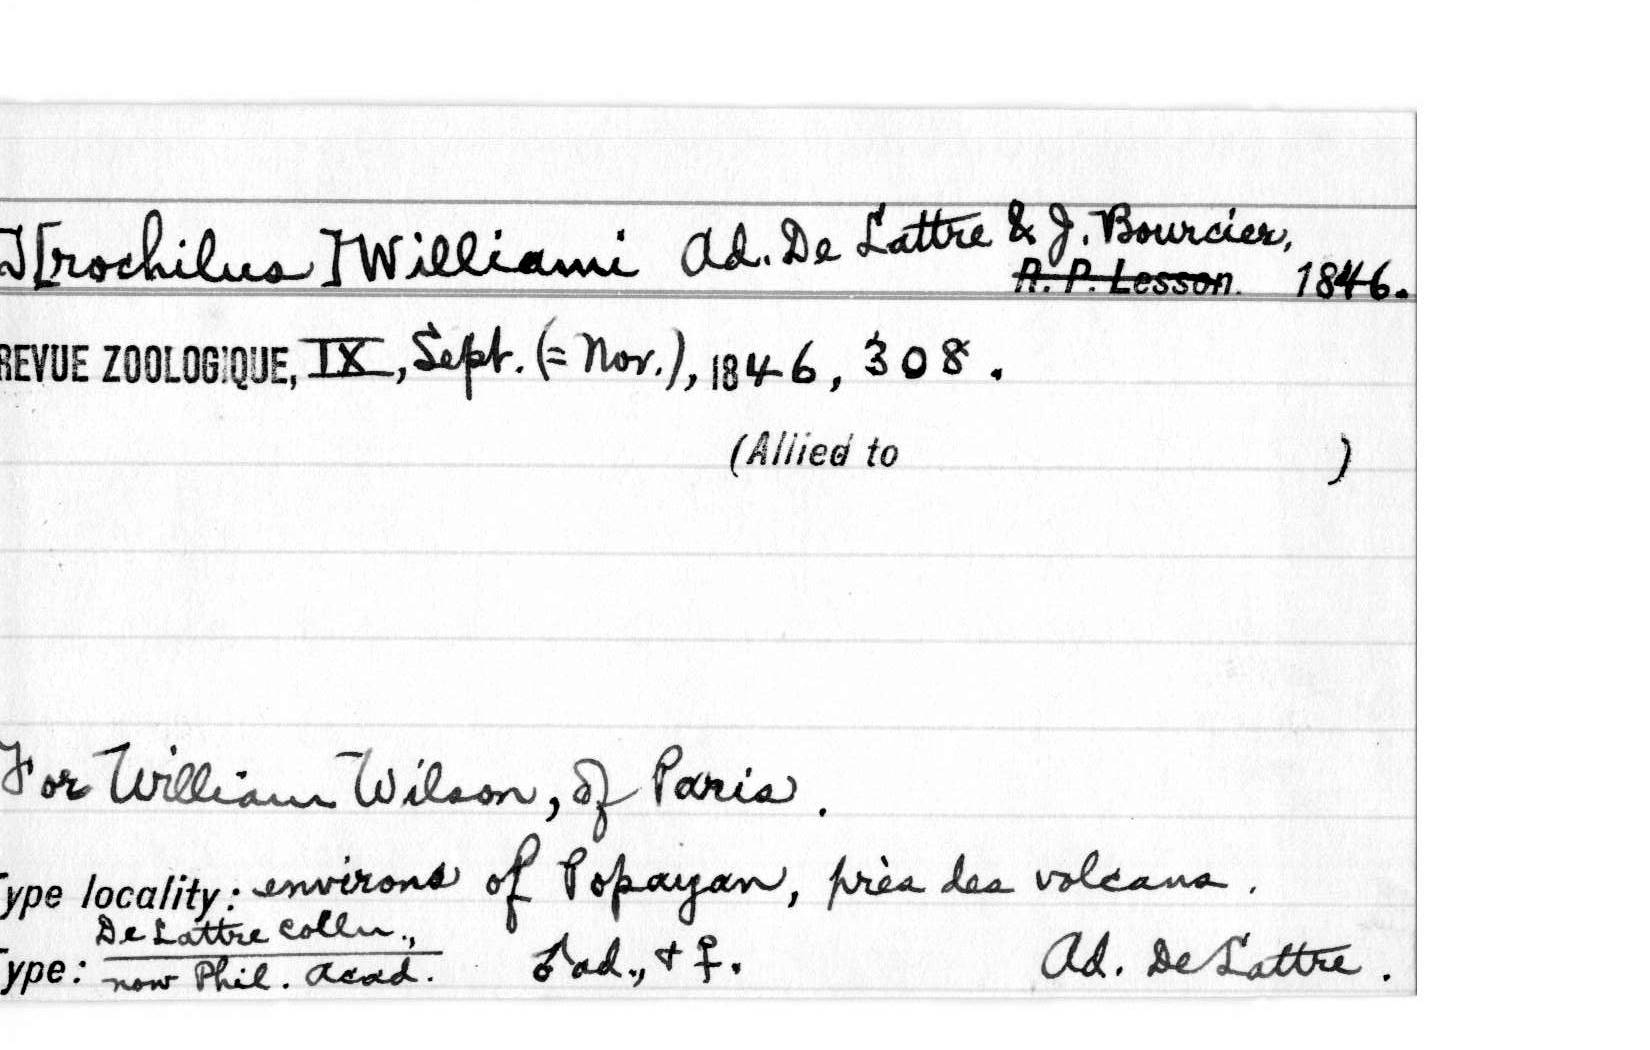 T[rochilus] Williami Ad. De Lattre & J. Bourcier,
R. P. Lesson. 1846.
REVUE ZOOLOGIQUE, IX, Sept. (= Nov.), 1846, 308.
(Allied to )
For William Wilson, of Paris.
Type locality: environs of Popayan, près des volcans.
De Lattre Colln.,
Type: now Phil. Acad. ♂ ad., + ♀. Ad. De Lattre.